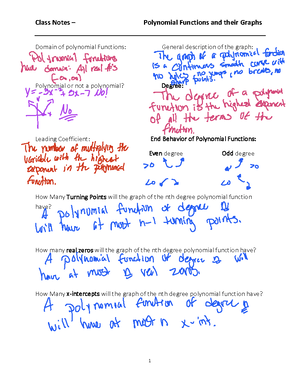 Class Notes – Polynomial Functions and their Graphs
Domain of polynomial functions:
Polynomial functions
have domain all real #'s
(-∞, ∞)
General description of the graph:
The graph of a polynomial function
is a continuous smooth curve with
no holes, no jumps, no breaks, no
Polynomial or not a polynomial?
No
Degree:
The degree of a polynomial
function is the highest exponent
of all the terms of the
function.
Leading Coefficient:
The number of multiplying the
variable with the highest
exponent in the polynomial
function.
End Behavior of Polynomial Functions:
Even degree Odd degree
>0 >0
<0 <0
How Many Turning Points will the graph of the nth degree polynomial function
have?
A polynomial function of degree n
will have at most n-1 turning points.
How many real zeros will the graph of the nth degree polynomial function have?
A polynomial function of degree n will
have at most n real zeros.
How Many x-intercepts will the graph of the nth degree polynomial function have?
A polynomial function of degree n
will have at most n x-int.
1